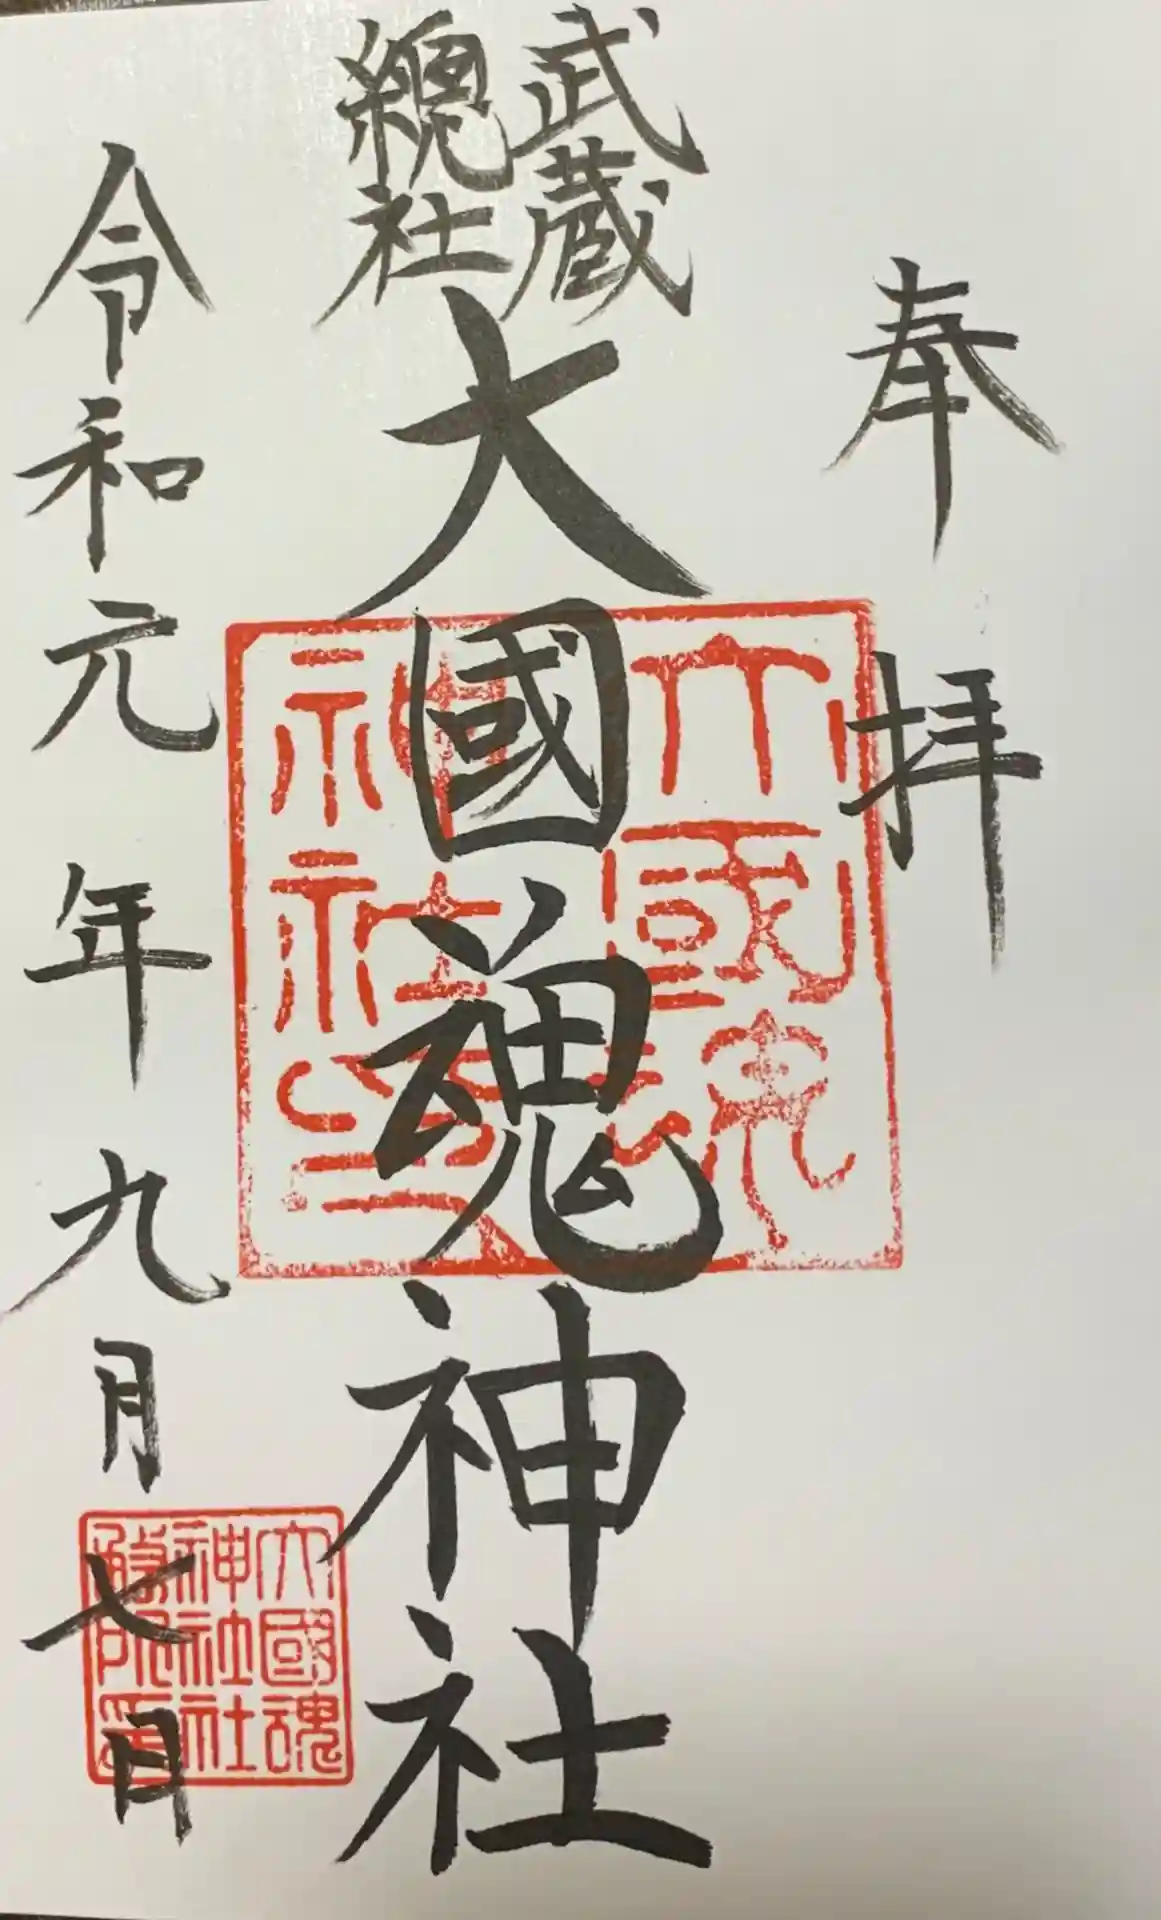 奉拝
武蔵
總社
大國魂神社
令和元年九月七日
大國魂
神社印
大國魂
神社社
務所印